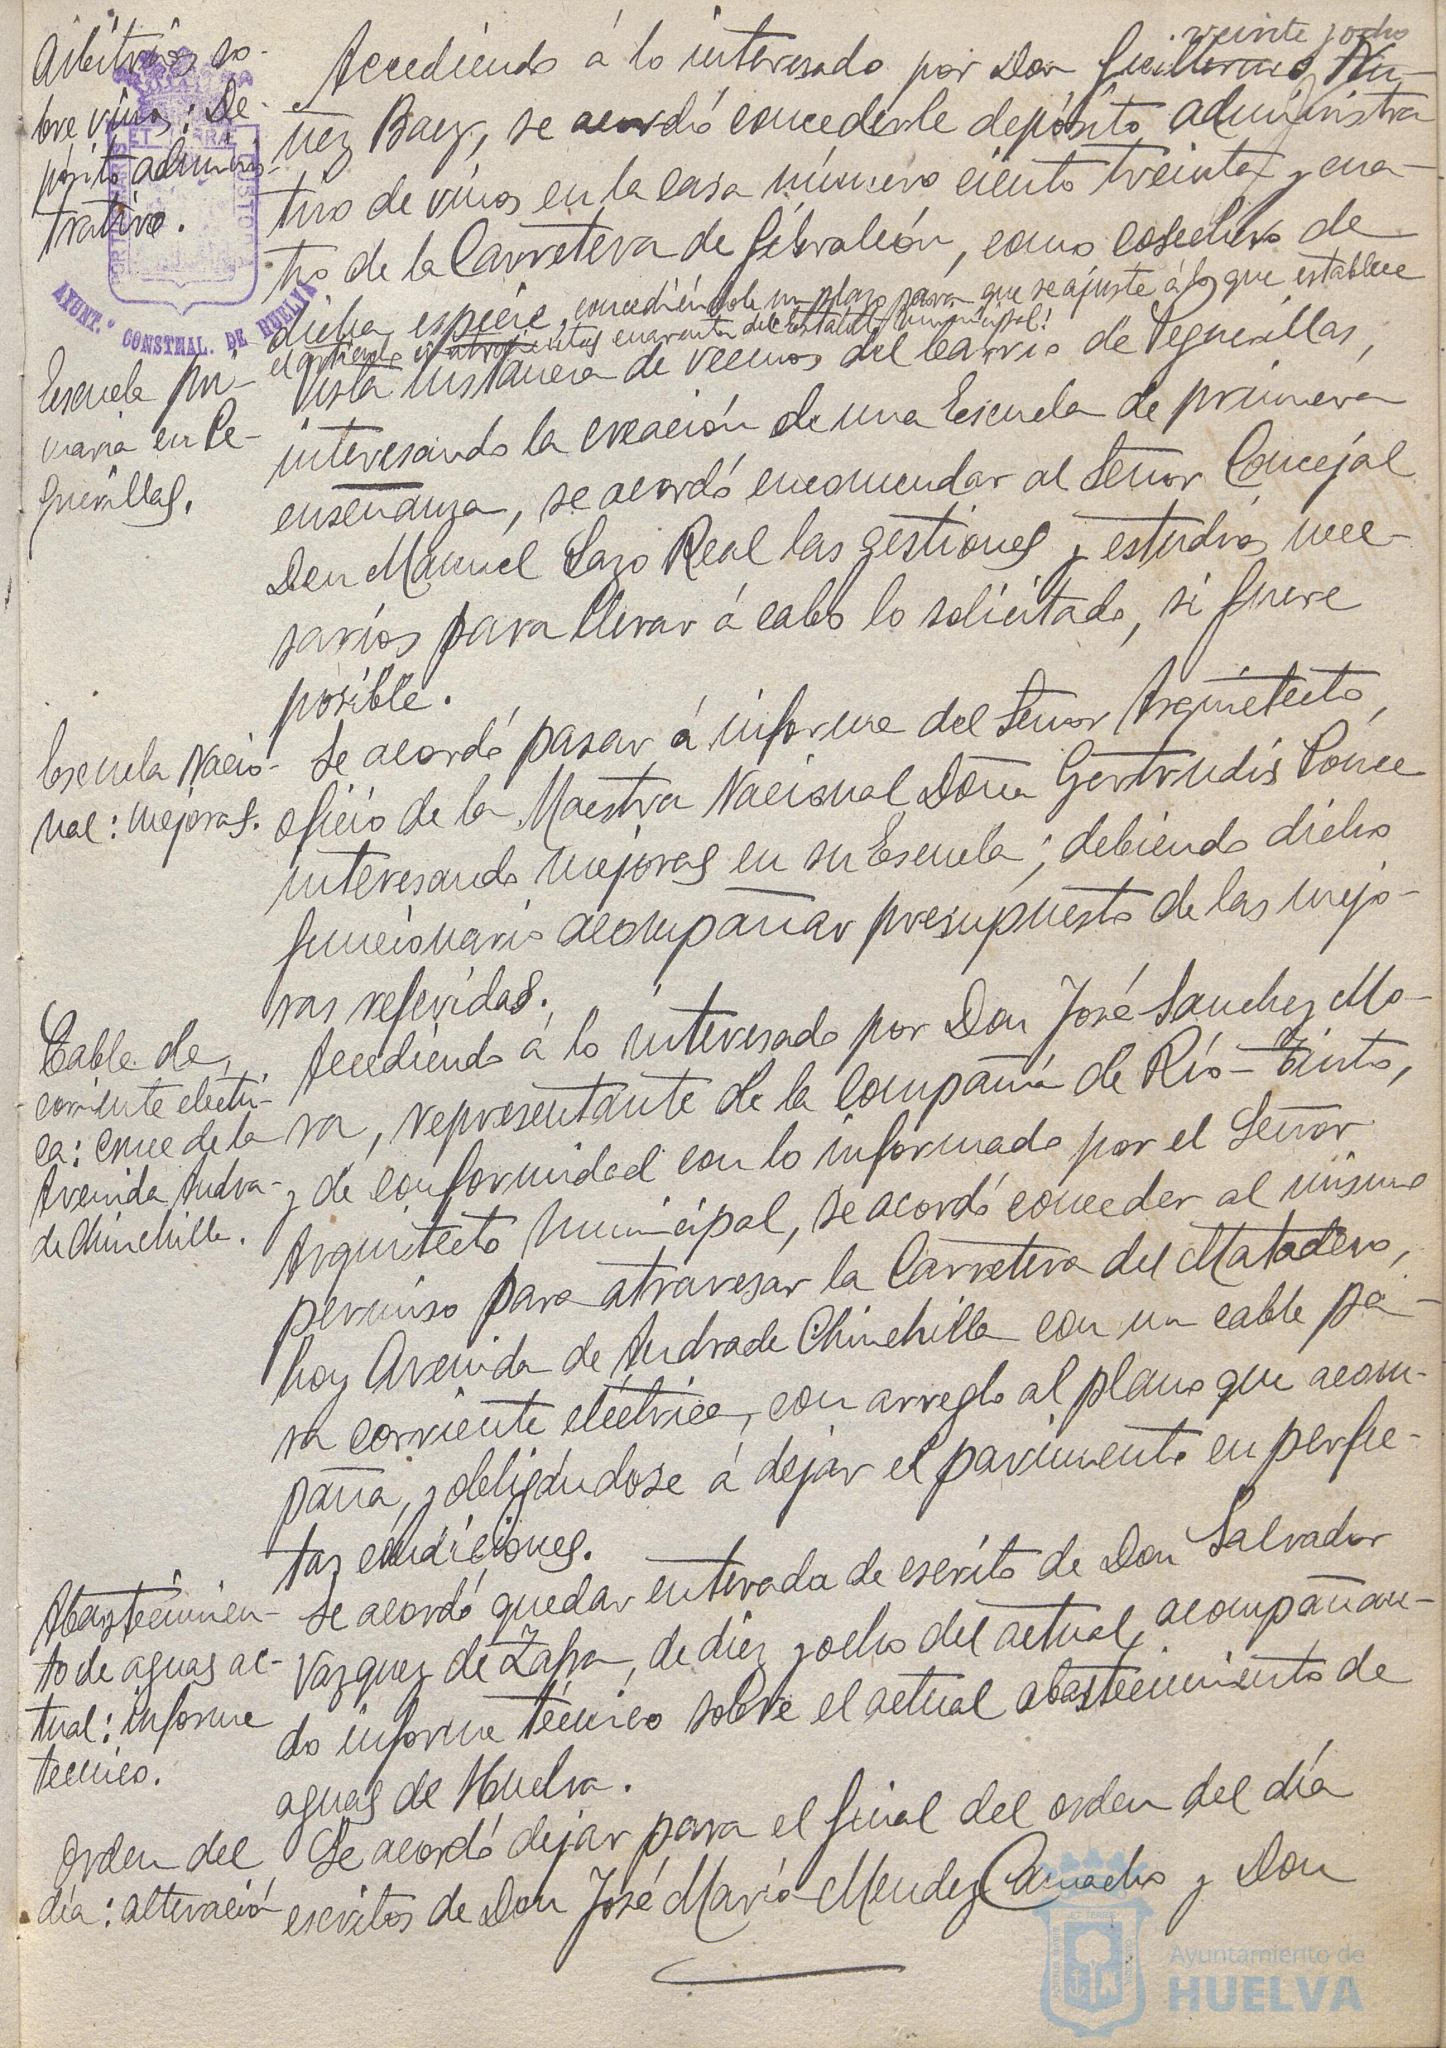 veinte y ocho
Arbitrios so-
bre vinos: De-
pósito adminis-
trativo.
Accediendo á lo interesado por Don Guillermo Nu-
ñez Baez, se acordó concederle depósito administra
tivo de vinos en la casa número ciento treinta y cua-
tro de la Carretera de Gibraleón, como cosechero de
dicha especie, concediéndole un plazo para que se ajuste á lo que establece
el artículo cuatrocientos cuarenta del Estatuto Municipal.
AYUNT.º CONSTNAL. DE HUELVA
Escuela pri-
maria en Pe-
guerillas.
Vista instancia de vecinos del barrio de Peguerillas,
interesando la creación de una Escuela de primera
enseñanza, se acordó encomendar al Señor Concejal
Don Manuel Lazo Real las gestiones y estudios nece-
sarios para llevar á cabo lo solicitado, si fuere
posible.
Escuela Nacio-
nal: mejoras.
Se acordó pasar á informe del Señor Arquitecto,
oficio de la Maestra Nacional Doña Gertrudis Ponce
interesando mejoras en su Escuela; debiendo dicho
funcionario acompañar presupuesto de las mejo-
ras referidas.
Cable de
corriente eléctri-
ca: cruce de la
Avenida Andra-
de Chinchilla.
Accediendo á lo interesado por Don José Sanchez Mo-
ra, representante de la Compañía de Río-Tinto,
y de conformidad con lo informado por el Señor
Arquitecto Municipal, se acordó conceder al mismo
permiso para atravesar la Carretera del Matadero,
hoy Avenida de Andrade Chinchilla con un cable pa-
ra corriente eléctrica, con arreglo al plano que acom-
paña, y obligándose á dejar el pavimento en perfec-
tas condiciones.
Abastecimien-
to de aguas ac-
tual: informe
técnico.
Se acordó quedar enterada de escrito de Don Salvador
Vazquez de Zafra, de diez y ocho del actual, acompañan-
do informe técnico sobre el actual abastecimiento de
aguas de Huelva.
Orden del
día: alteración
Se acordó dejar para el final del orden del día
escritos de Don José María Mendez Camacho y Don
Ayuntamiento de
HUELVA